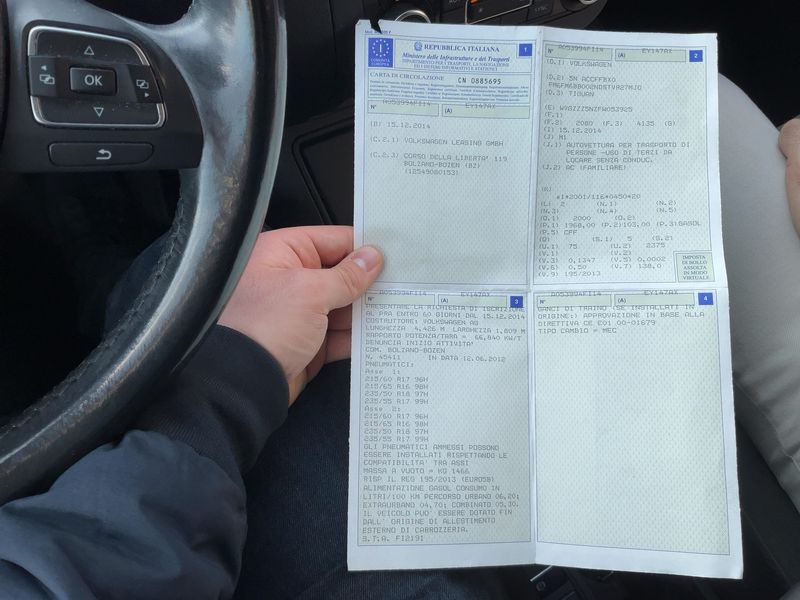 OK
SYNC
COMUNITA' EUROPEA
I
REPUBBLICA ITALIANA
1
Ministero delle Infrastrutture e dei Trasporti
DIPARTIMENTO PER I TRASPORTI, LA NAVIGAZIONE
ED I SISTEMI INFORMATIVI E STATISTICI
CARTA DI CIRCOLAZIONE CN 0885695
N° A053994FI14 (A) EY147AX
(B) 15.12.2014
(C.2.1) VOLKSWAGEN LEASING GMBH
(C.2.3) CORSO DELLA LIBERTA' 119
BOLZANO-BOZEN (BZ)
(12549080153)
N° A053994FI14 (A) EY147AX 2
(D.1) VOLKSWAGEN
(D.2) 5N ACCFFBX0
FM6FM6BB002NDSTVR27MJ0
(D.3) TIGUAN
(E) WVGZZZ5NZFW053925
(F.1)
(F.2) 2080 (F.3) 4135 (G)
(I) 15.12.2014
(J) M1
(J.1) AUTOVETTURA PER TRASPORTO DI
PERSONE -USO DI TERZI DA
LOCARE SENZA CONDUC.
(J.2) AC (FAMILIARE)
(K)
e1*2001/116*0450*20
(L) 2 (N.1) (N.2)
(N.3) (N.4) (N.5)
(O.1) 2000 (O.2)
(P.1) 1968,00 (P.2)103,00 (P.3)GASOL
(P.5) CFF
(Q) (S.1) 5 (S.2)
(U.1) 75 (U.2) 2375
(V.1) (V.2)
(V.3) 0,1347 (V.5) 0,0002
(V.6) 0,50 (V.7) 138,0
(V.9) 195/2013
IMPOSTA
DI BOLLO
ASSOLTA IN
MODO
VIRTUALE
N° A053994FI14 (A) EY147AX 3
PRESENTARE LA RICHIESTA DI ISCRIZIONE
AL PRA ENTRO 60 GIORNI DAL 15.12.2014
COSTRUTTORE: VOLKSWAGEN AG
LUNGHEZZA 4,426 M LARGHEZZA 1,809 M
RAPPORTO POTENZA/TARA = 66,840 KW/T
DENUNCIA INIZIO ATTIVITA'
COM. BOLZANO-BOZEN
N. 45411 IN DATA 12.06.2012
PNEUMATICI:
Asse 1:
215/60 R17 96H
215/65 R16 98H
235/50 R18 97H
235/55 R17 99H
Asse 2:
215/60 R17 96H
215/65 R16 98H
235/50 R18 97H
235/55 R17 99H
GLI PNEUMATICI AMMESSI POSSONO
ESSERE INSTALLATI RISPETTANDO LE
COMPATIBILITA' TRA ASSI
MASSA A VUOTO = KG 1466
RISP IL REG 195/2013 (EURO5B)
ALIMENTAZIONE GASOL CONSUMO IN
LITRI/100 KM PERCORSO URBANO 06,20;
EXTRAURBANO 04,70; COMBINATO 05,30.
IL VEICOLO PUO' ESSERE DOTATO FIN
DALL' ORIGINE DI ALLESTIMENTO
ESTERNO DI CARROZZERIA.
S.T.A. FI2191
N° A053994FI14 (A) EY147AX 4
GANCI DI TRAINO (SE INSTALLATI IN
ORIGINE:) APPROVAZIONE IN BASE ALLA
DIRETTIVA CE E01 00-01679
TIPO CAMBIO = MEC